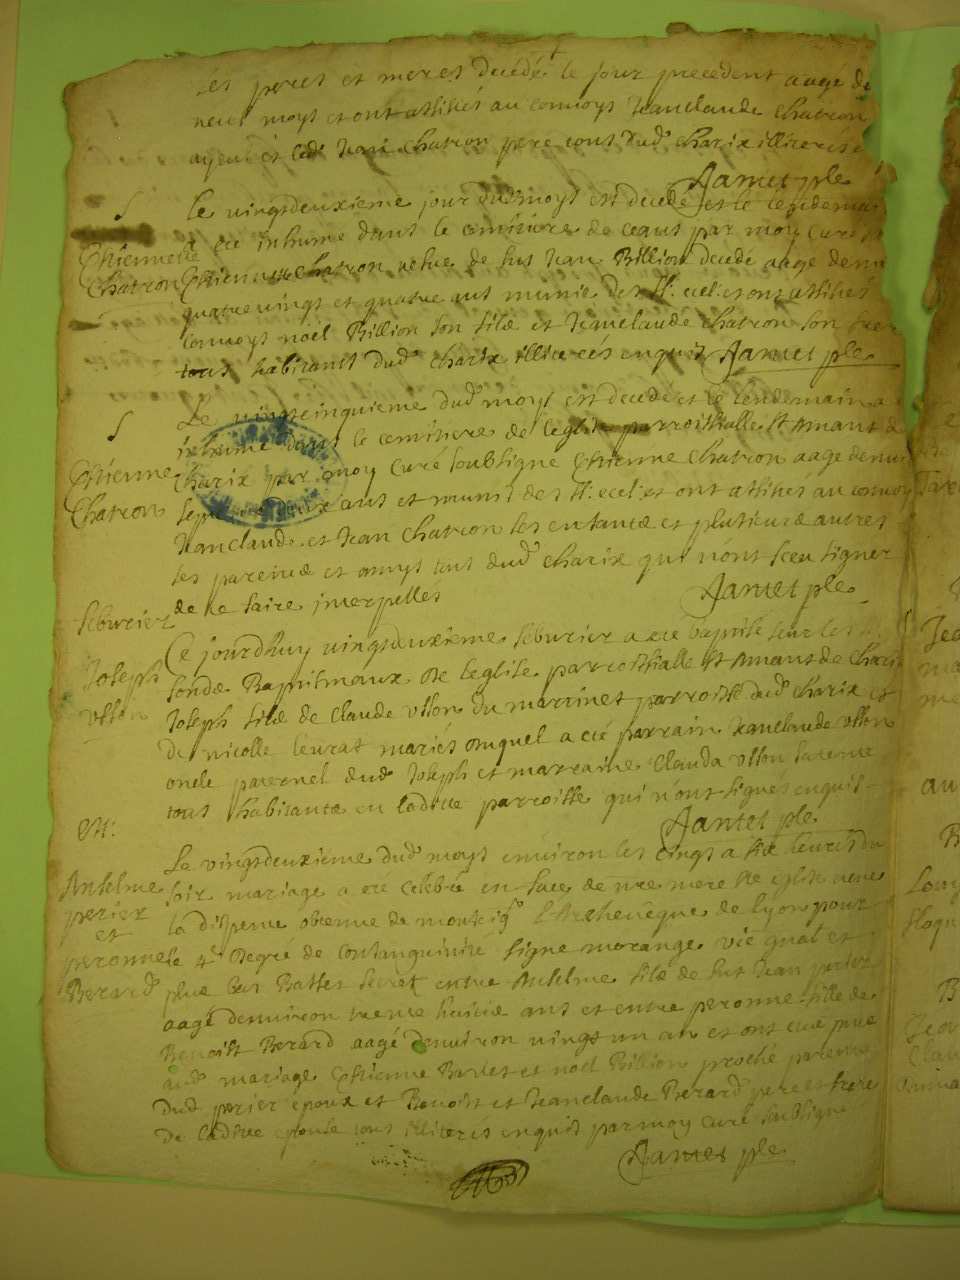 les peres et meres decedé le jour precedent aagé de
neuf moys et ont assistés au convoys Jeanclaude Chatron
ayeul et led. Jean Chatron pere tous dud. Charix illiterés
Jantet ptre
Le vingtdeuxieme jour dud. moys est decedé et le lendemain
a été inhumé dans le cemitiere de ceans par moy curé
Estiennette
Chatron
Estiennette Chatron vefve de fut Jean Billion decedé aagé denv
quatrevings et quatre ans munie des St: ecel: et ont assistés
convoys noel Billion son filz et Jeanclaude Chatron son frer
tous habitants dud. Charix illiterés enquis Jantet ptre
Le vingtcinquieme dud. moys est decedé et le lendemain a
inhumé dans le cemitiere de leglise parroissialle St Amant de
Estienne
Chatron
Charix par moy curé soubsigné Estienne Chatron aagé denvi
sept deux ans et munis des St: ecel: et ont assistés au convoy
Jeanclaude et Jean Chatron les enfantz et plusieurs autres
ses parentz et amys tous dud. Charix qui n'ont sceu signer
de ce faire interpellés
Jantet ptre
feburier
Ce jourdhuy vingtdeuxieme feburier a été baptisé sur les
Joseph
fondz Baptismaux de leglise parroissialle St Amant de Charix
Joseph filz de Claude du martinet parroisse dud. Charix et
de nicolle leurat mariés auquel a été parrain Jeanclaude
oncle paternel dud. Joseph et marraine Clauda
tous habitantz en laditte parroisse qui nont signés enquis
Jantet ptre
M:
Le vingtdeuxieme dud. moys environ les cinqs a six heures du
Anselme
perier
et
peronne
Berard
soir mariage a été celebré en face de nre mere Ste eglise veue
la dispense obtenue de monseigr l'Archevêque de lyon pour
le 4e degré de consanguinité signé morange vic gnal et
plus bas Basset secret entre Anselme filz de fut Jean perier
aagé denviron trente huictz ans et entre peronne fille de
Benoist Berard aagé denviron vingt un an et ont
aud. mariage Estienne Barlet et noel Billion proche parentz
dud. perier epoux et Benoist et Jeanclaude Berard pere et frere
de laditte epouse tous illiterés enquis par moy curé soubsigné
Jantet ptre